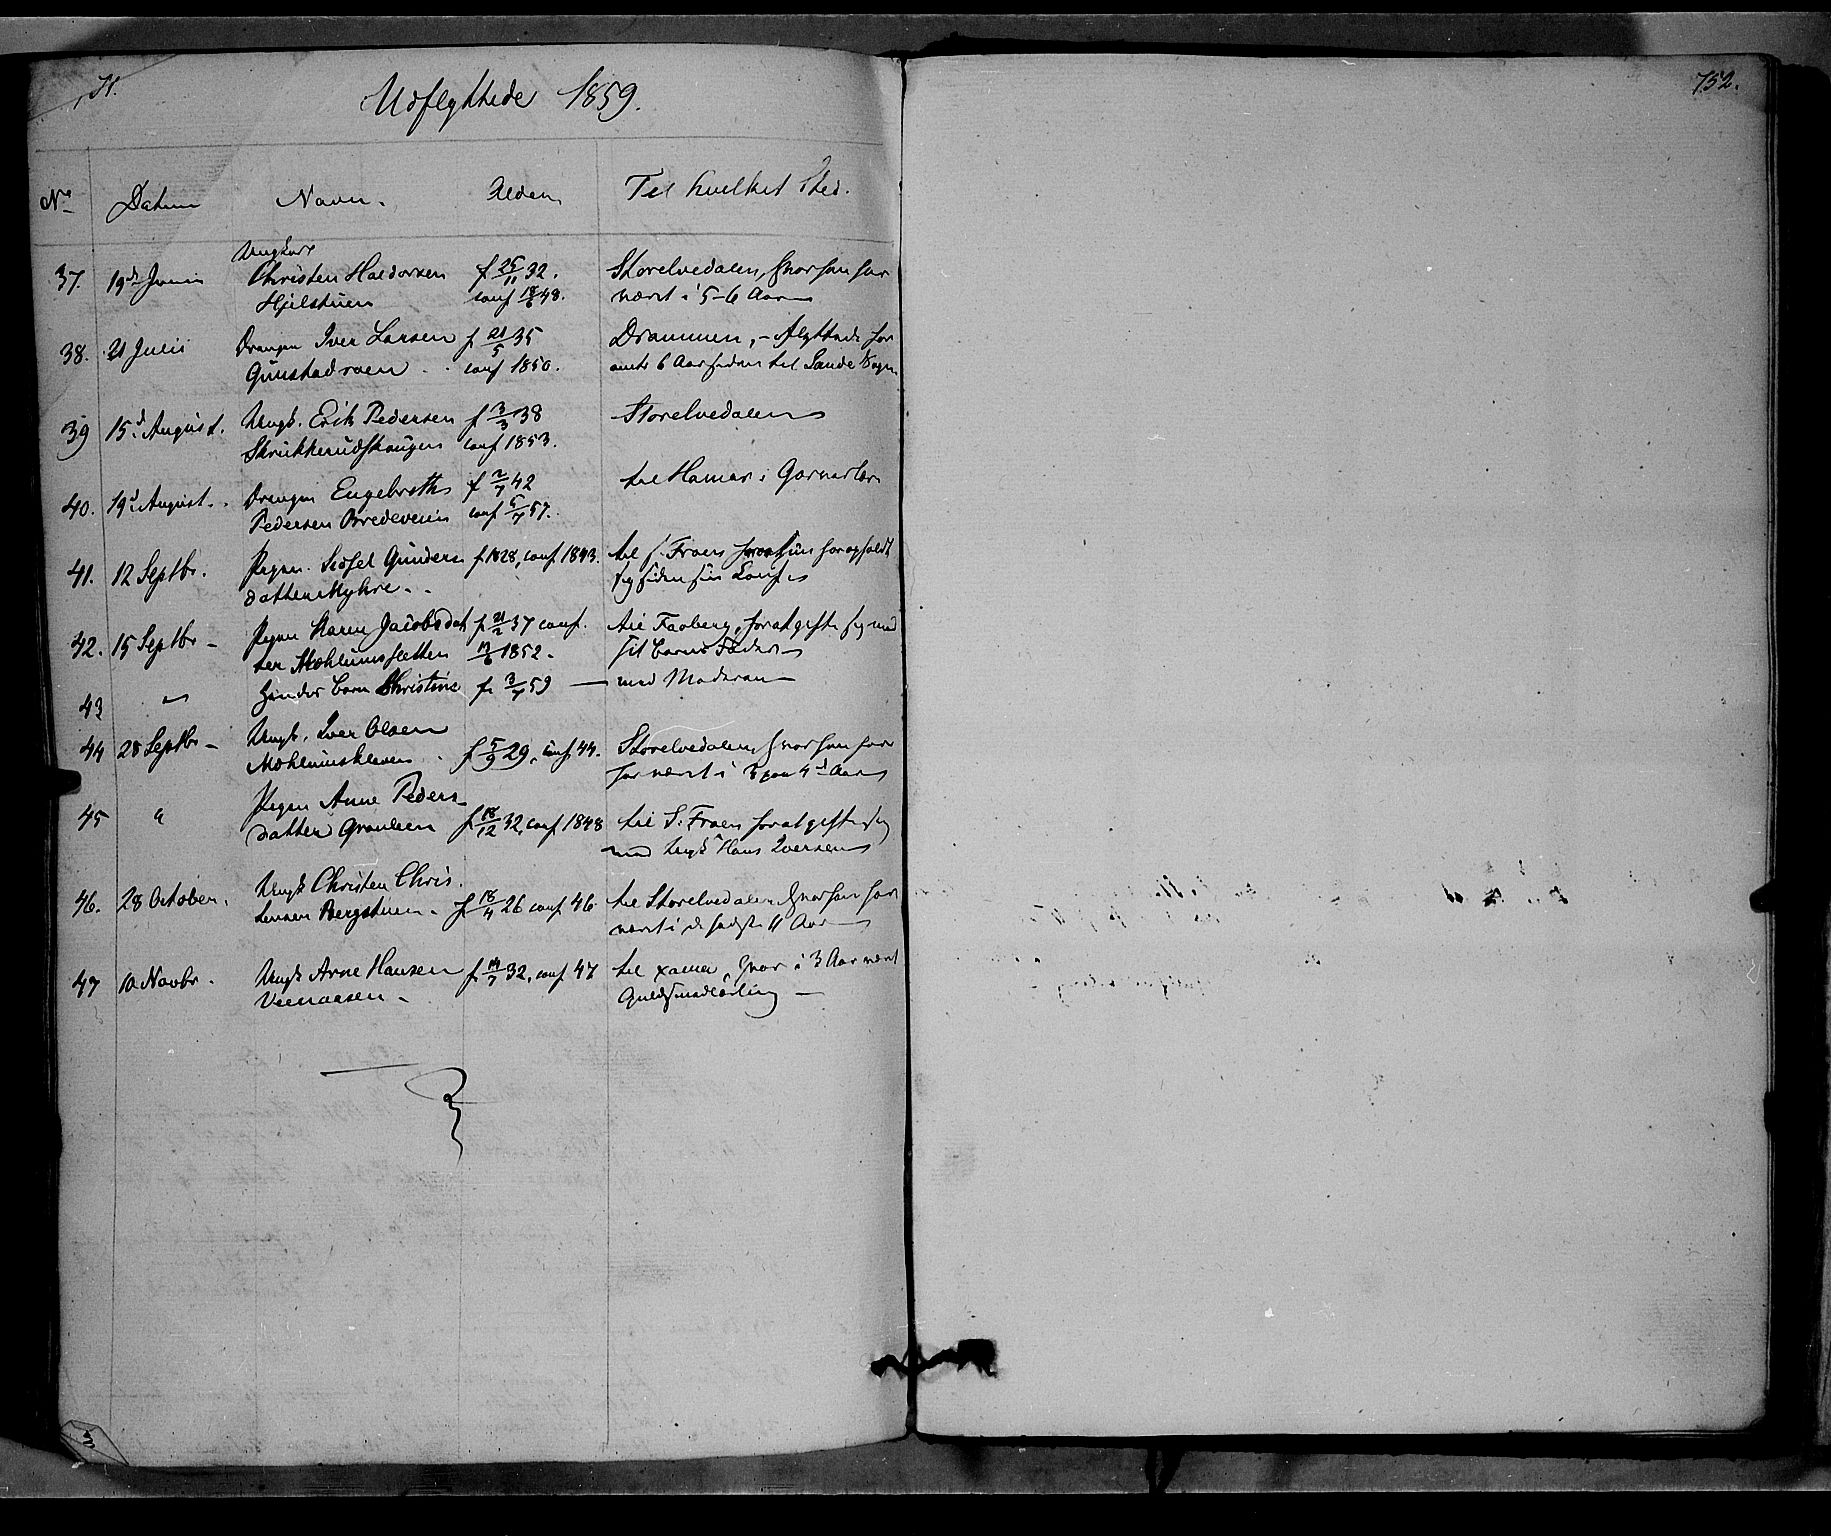 Udflyttede 1859.
752.
No Datum Navn. Alder Til hvilket Sted.
37. 19de Junii Ungkarl Christen Haldorsen Hjelstuen f 25/11 32. conf 18/6 48. Storelvedalen, hvor han har været i 5-6 Aar
38. 21 Julii Drengen Iver Larsen Gunstadroen f 21/5 35 conf 1850. Drammen, - flyttede for 6 Aar siden til Sande Sogn
39 15d August. Ungk. Erik Pedersen Skrukkerudshaugen f 3/3 38 conf 1853. Storelvedalen
40. 19d August. Drengen Engebreth Pedersen Bredeveien f 2/7 42 conf 5/7 57. til Hamar i Garverlære
41. 12 Septbr. Pigen Gunders datter Myhre f. 1828, conf 1843. til S. Fron hvor hun har opholdt sig siden sin Conf.
42. 15 Septbr Pigen Karen Jacobsdatter Mæhlumsletten f 21/2 37 conf. 1852. til Faaberg, for at gifte sig med sit Barns Fader
43 " hendes Barn Christine f. 3/7 59 med Moderen
44 28 Septbr Ungk. Iver Olsen Mæhlumskleven f 5/9 29, conf 44. Storelvedalen, hvor han har været i 3 paa 4d Aar
45 " Pigen Anne Pedersdatter f 18/12 32, conf 1848 til S. Fron for at gifte sig med Ungk Hans Iversen
46. 28 October. Ungk Christen Christensen Bergstuen f 18/4 26 conf 46 til Storelvedalen hvor han har været i de sidste 11 Aar
47 10 Novbr. Ungk Arne Hansen f 14/7 32, conf 47 til Xania, hvor i 3 Aar været Guldsmedlærling